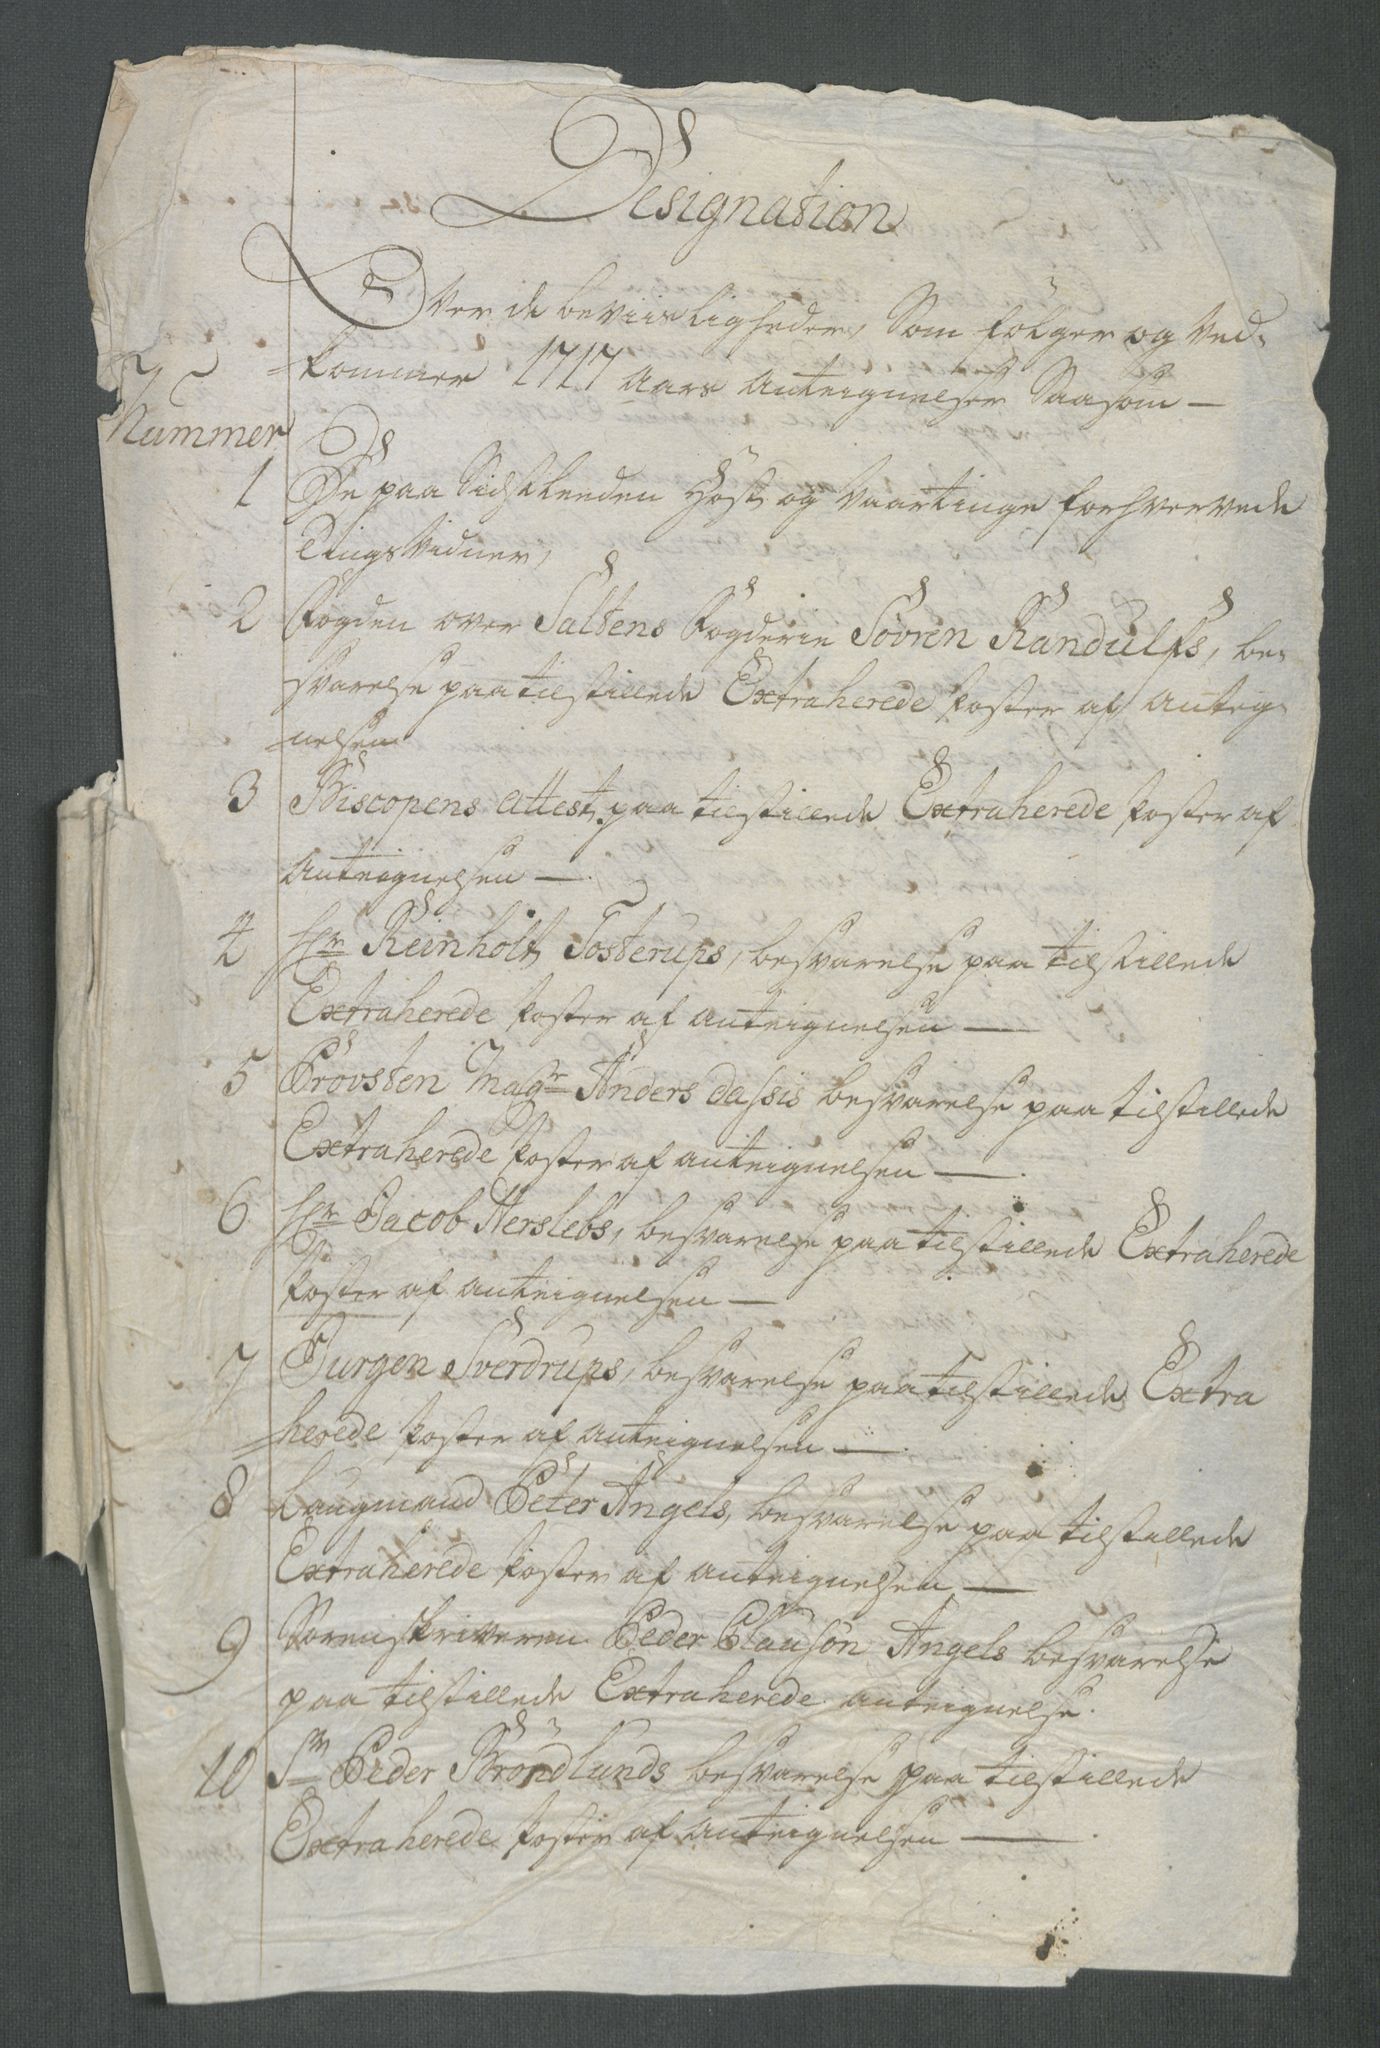 Designation
Over de beviisligheder, Som følger og Ved-
kommer 1717 Aars Anteignelser Saasom —
Nummer
1 De paa Sidstleeden Høst og Vaartinge forhvervede
Tings Vidner,
2 Fogden over Saltens Fogderie Søvren Randulfs, be-
svarelse paa tilstillede Extraherede Poster af Anteg-
nelsen
3 Biscopens Attest, paa tilstillede Extraherede Poster af
Anteignelsen —
4 Hr Reinholt Tosterups, besvarelse paa tilstillede
Extraherede Poster af Anteignelsen —
5 Prousten Magr Anders dassis besvarelse paa tilstillede
Extraherede Poster af anteignelsen —
6 Hr Jacob Herslebs, besvarelse paa tilstillede Extraherede
Poster af anteignelsen —
7 Jurgen Sverdrups, besvarelse paa tilstillede Extra
herede Poster af anteignelsen —
8 Laugmand Peter Angels, besvarelse paa tilstillede
Extraherede Poster af anteignelsen —
9 Sorenskriveren Peder Clausøn Angels besvarelse
paa tilstillede Extraherede anteignelse.
10 Sr Peder Brøndlunds besvarelse paa tilstillede
Extraherede Poster af anteignelsen —